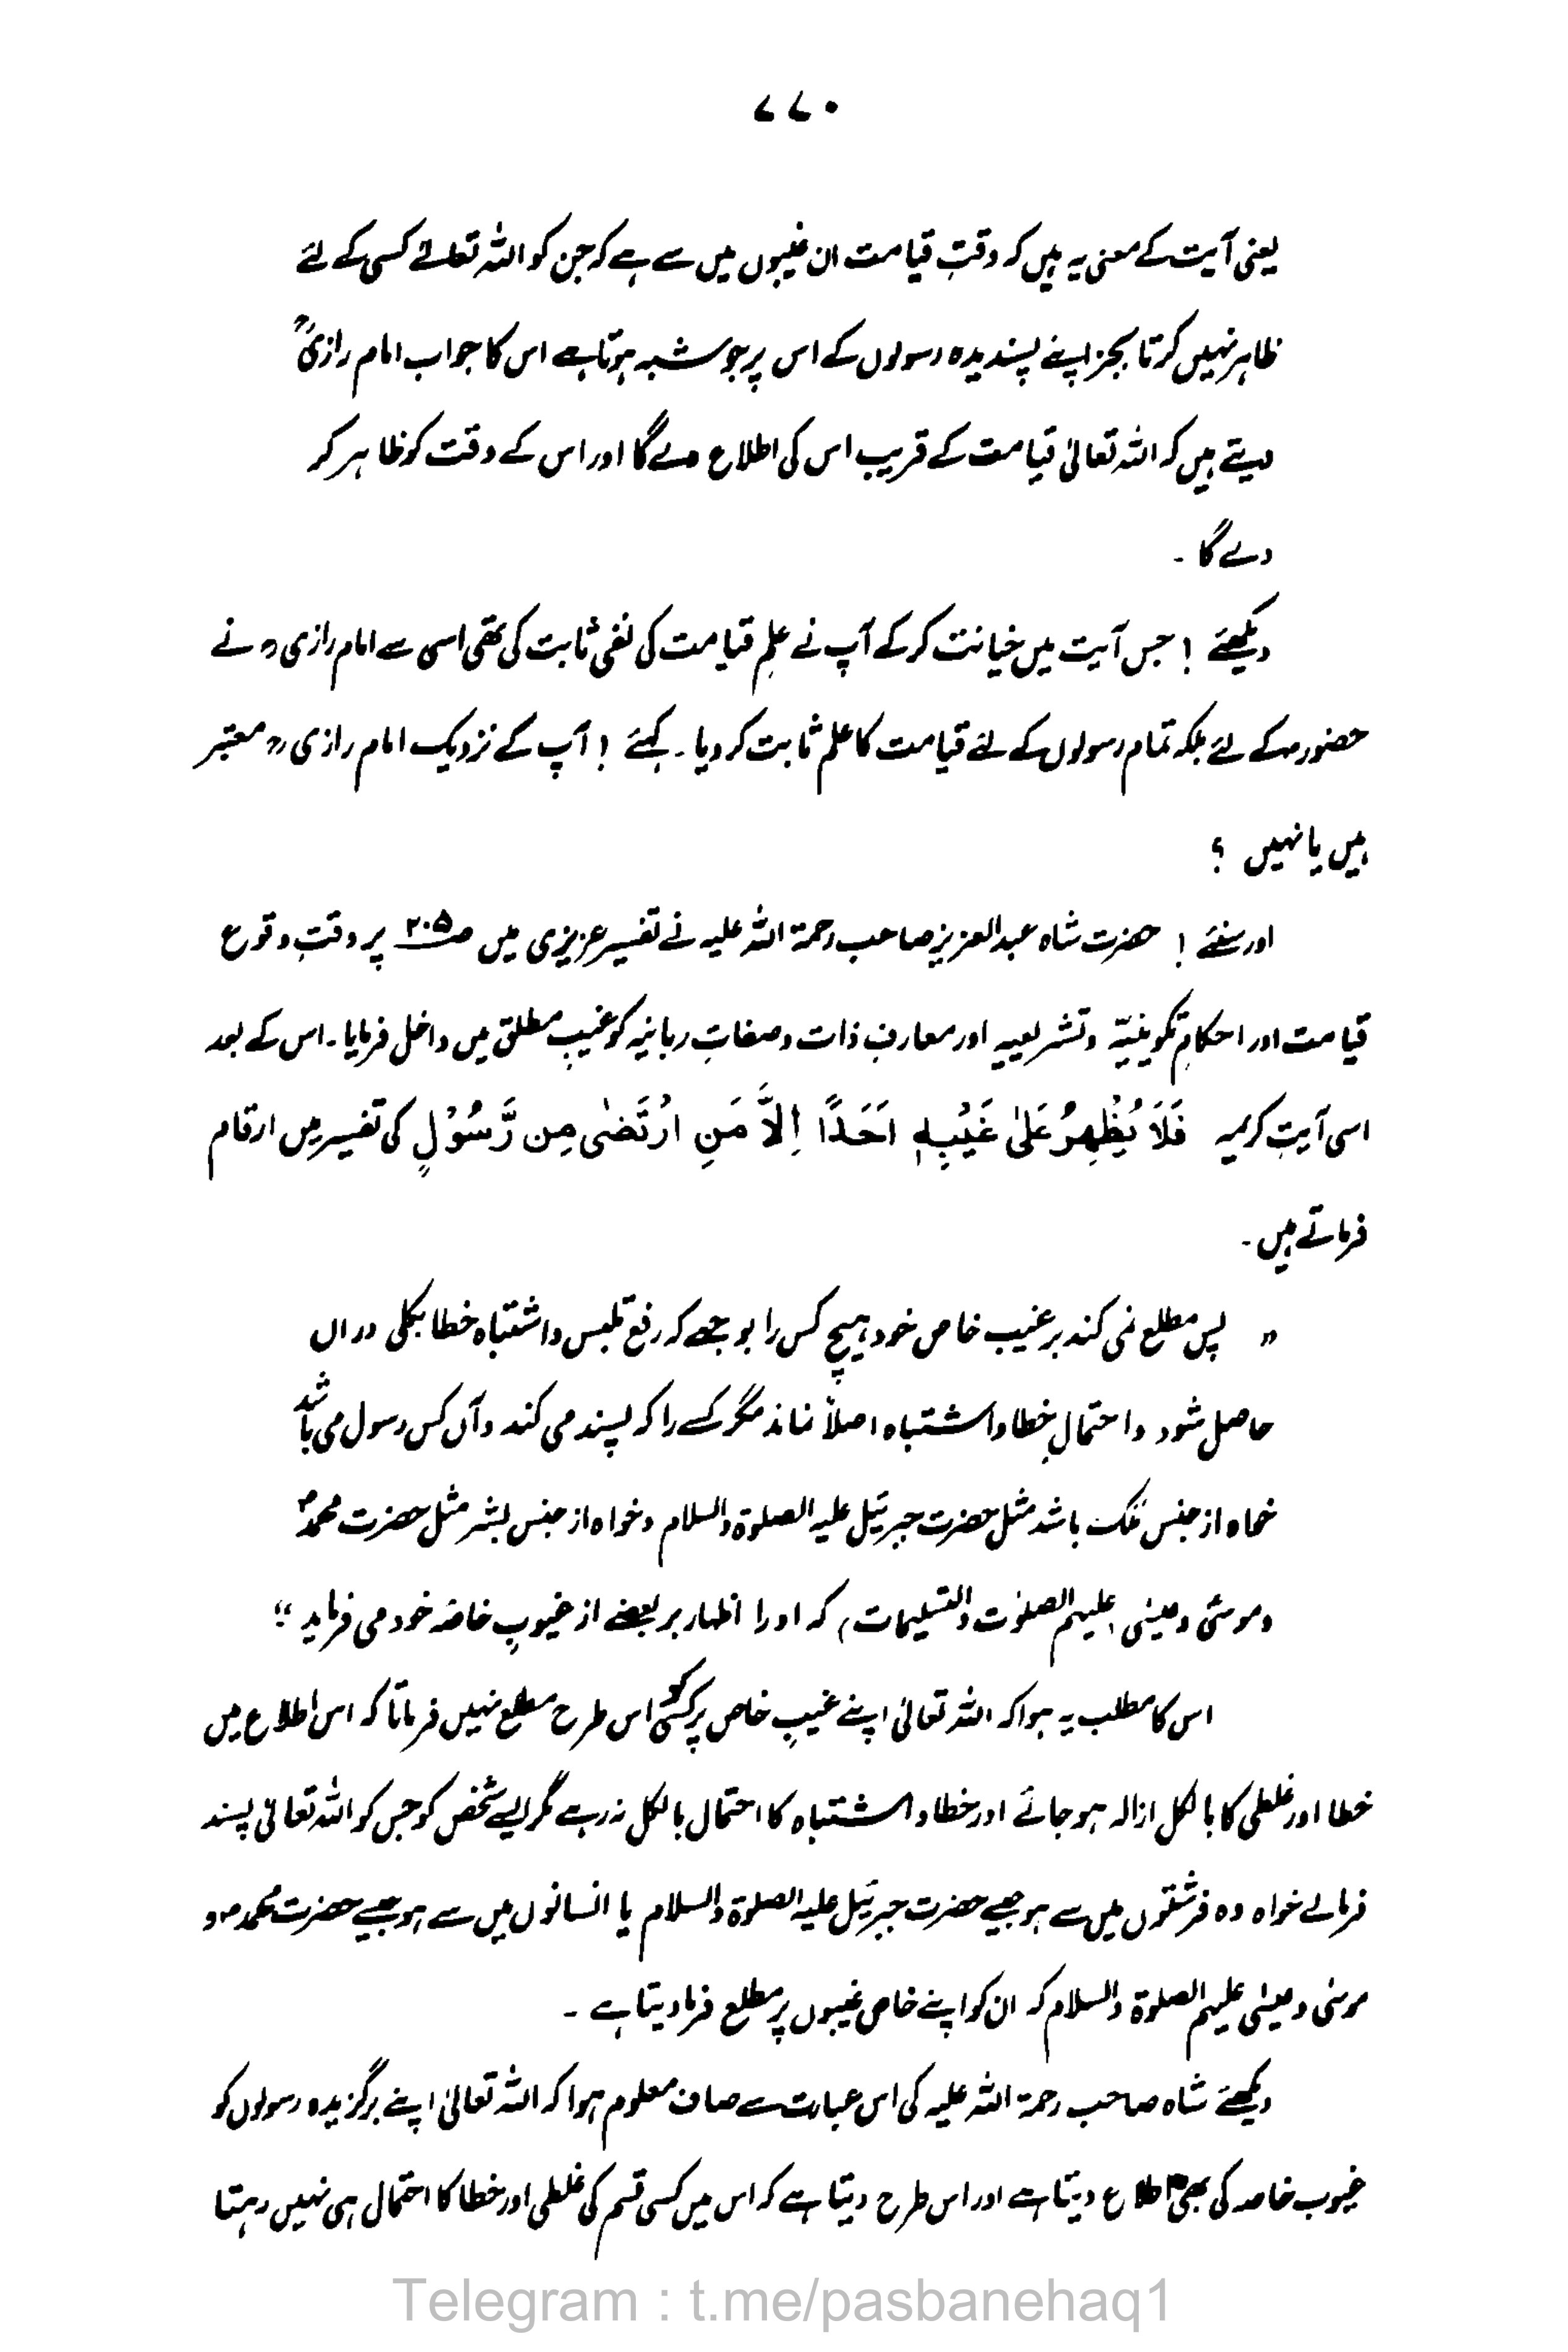 ۷۷۰
یعنی آیت کے معنی یہ ہیں کہ وقتِ قیامت ان غیبوں میں سے ہے کہ جن کو اللہ تعالےٰ کسی کے لئے
ظاہر نہیں کرتا بجز اپنے پسندیدہ رسولوں کے اس پر جو شبہ ہوتا ہے اس کا جواب امام رازیؒ
دیتے ہیں کہ اللہ تعالیٰ قیامت کے قریب اس کی اطلاع دے گا اور اس کے وقت کو ظاہر کر
دے گا ۔
دیکھئے ! جس آیت میں خیانت کر کے آپ نے علمِ قیامت کی نفی ثابت کی تھی اسی سے امام رازیؒ نے
حضورؐ کے لئے بلکہ تمام رسولوں کے لئے قیامت کا علم ثابت کر دیا ۔ کہئے ! آپ کے نزدیک امام رازیؒ معتبر
ہیں یا نہیں ؟
اور سنئے ! حضرت شاہ عبدالعزیز صاحب رحمۃ اللہ علیہ نے تفسیر عزیزی میں ص۲۰۵ پر وقتِ وقوع
قیامت اور احکامِ تکوینیّہ وتشریعیہ اور معارفِ ذات وصفاتِ ربانیہ کو غیبِ مطلق میں داخل فرمایا ۔ اس کے بعد
اسی آیتِ کریمہ فَلَا یُظْهِرُ عَلٰی غَیْبِهٖ اَحَدًا اِلَّا مَنِ ارْتَضٰی مِن رَّسُوْلٍ کی تفسیر میں ارقام
فرماتے ہیں ۔
" پس مطلع نمی کند بر غیب خاص خود ہیچ کس را بوجہے کہ رفع تلبس واشتباہ خطا بکلی دراں
حاصل شود واحتمالِ خطا واشتباہ اصلاً نماند مگر کسے را کہ پسند می کند وآں کس رسول می باشد
خواہ از جنس مَلک باشد مثل حضرت جبرئیل علیہ الصلوۃ والسلام وخواہ از جنس بشر مثل حضرت محمدؐ
وموسیٰ وعیسٰی علیہم الصلوٰت والتسلیمات) کہ او را اظہار بر بعضے از غیوبِ خاصہ خود می فرماید "
اس کا مطلب یہ ہوا کہ اللہ تعالیٰ اپنے غیبِ خاص پر کسی کو اس طرح مطلع نہیں فرماتا کہ اس اطلاع میں
خطا اور غلطی کا بالکل ازالہ ہو جائے اور خطا واشتباہ کا احتمال بالکل نہ رہے مگر ایسے شخص کو جس کو اللہ تعالیٰ پسند
فرمالے خواہ وہ فرشتوں میں سے ہو جیسے حضرت جبرئیل علیہ الصلوۃ والسلام یا انسانوں میں سے ہو جیسے حضرت محمدؐ و
موسٰی وعیسٰی علیہم الصلوۃ والسلام کہ ان کو اپنے خاص غیبوں پر مطلع فرما دیتا ہے ۔
دیکھئے شاہ صاحب رحمۃ اللہ علیہ کی اس عبارت سے صاف معلوم ہوا کہ اللہ تعالیٰ اپنے برگزیدہ رسولوں کو
غیوب خاصہ کی بھی اطلاع دیتا ہے اور اس طرح دیتا ہے کہ اس میں کسی قسم کی غلطی اور خطا کا احتمال ہی نہیں رہتا
Telegram : t.me/pasbanehaq1